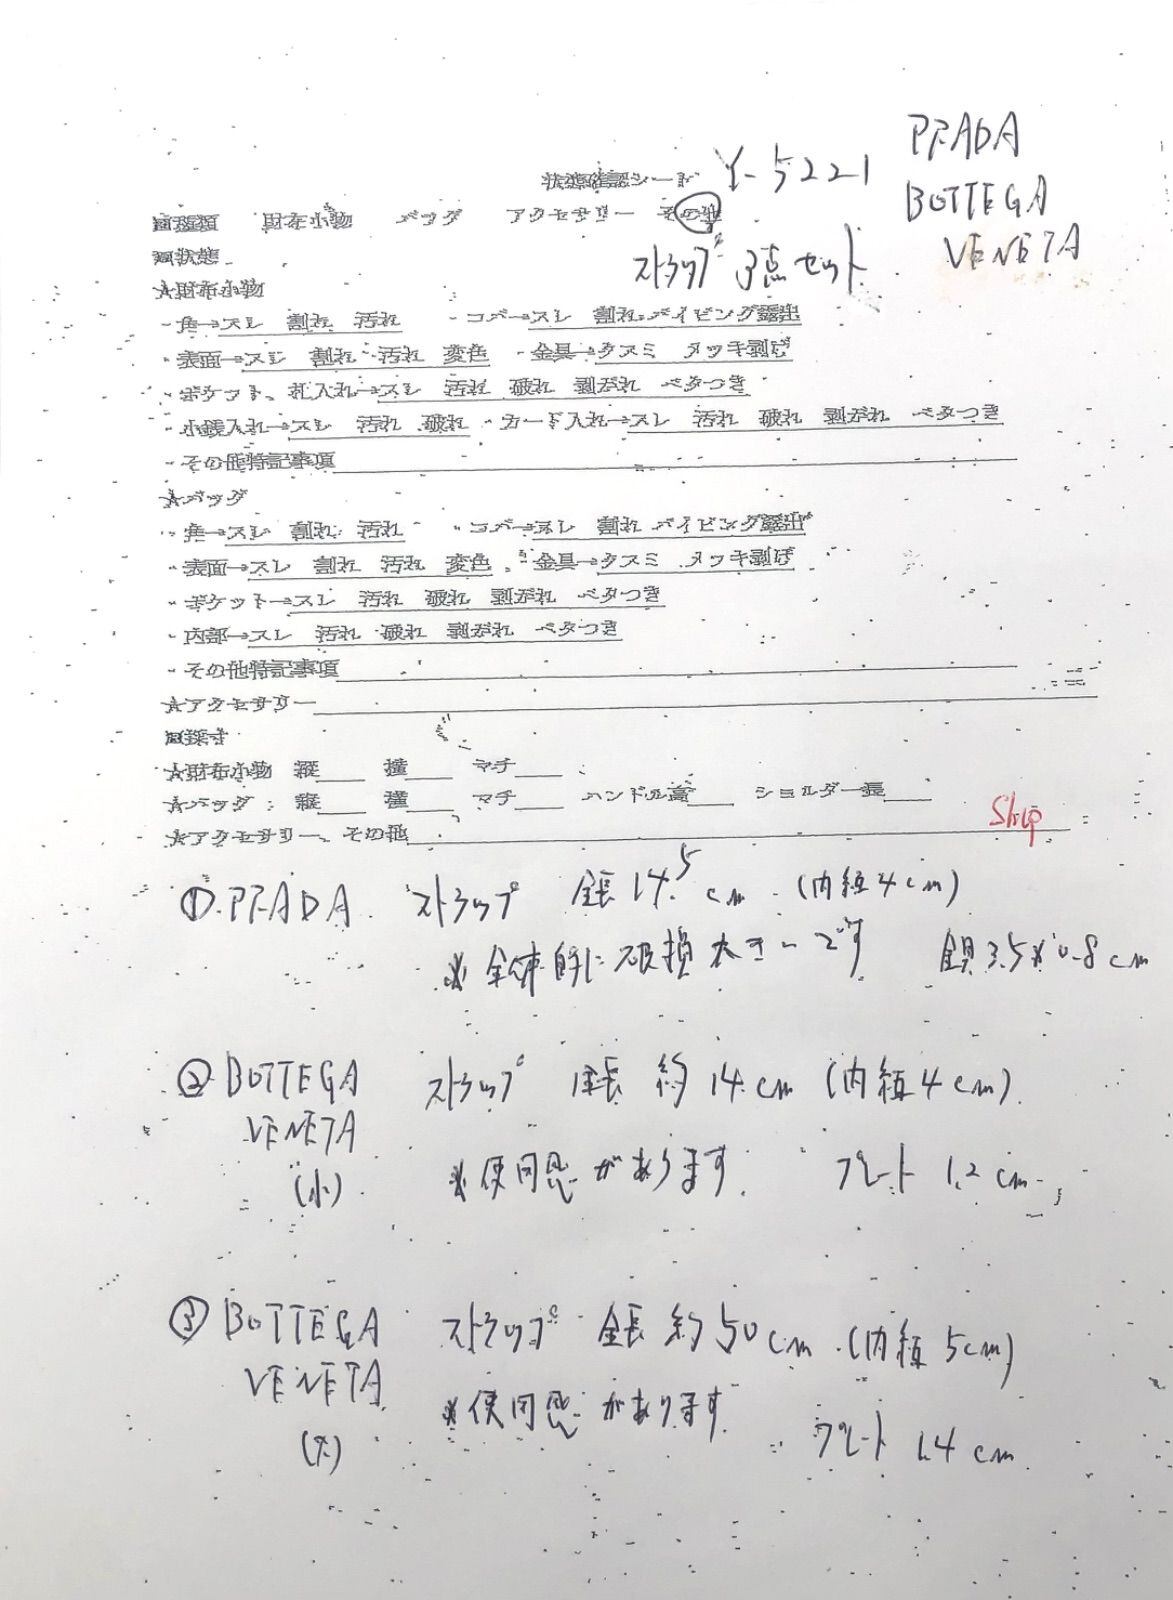 状態確認シート Y-5221 PRADA
BOTTEGA
VENETA
■種類 財布小物 バッグ アクセサリー その他
ストラップ 3点セット
■状態
★財布小物
・角→スレ 割れ 汚れ ・コバ→スレ 割れ パイピング露出
・表面→スレ 割れ 汚れ 変色 ・金具→クスミ メッキ剥げ
・ポケット、札入れ→スレ 汚れ 破れ 剥がれ ベタつき
・小銭入れ→スレ 汚れ 破れ ・カード入れ→スレ 汚れ 破れ 剥がれ ベタつき
・その他特記事項
★バッグ
・角→スレ 割れ 汚れ ・コバ→スレ 割れ パイピング露出
・表面→スレ 割れ 汚れ 変色 ・金具→クスミ メッキ剥げ
・ポケット→スレ 汚れ 破れ 剥がれ ベタつき
・内部→スレ 汚れ 破れ 剥がれ ベタつき
・その他特記事項
★アクセサリー
■採寸
★財布小物 縦 横 マチ
★バッグ 縦 横 マチ ハンドル高 ショルダー長
★アクセサリー、その他
①PRADA ストラップ 全長14.5cm (内径4cm)
※全体的に破損大きいです 金具3.5×0.8cm
②BOTTEGA ストラップ 全長 約14cm (内径4cm)
VENETA
(小) ※使用感があります プレート 1.2cm
③BOTTEGA ストラップ 全長 約50cm (内径5cm)
VENETA ※使用感があります
(大) プレート 1.4cm